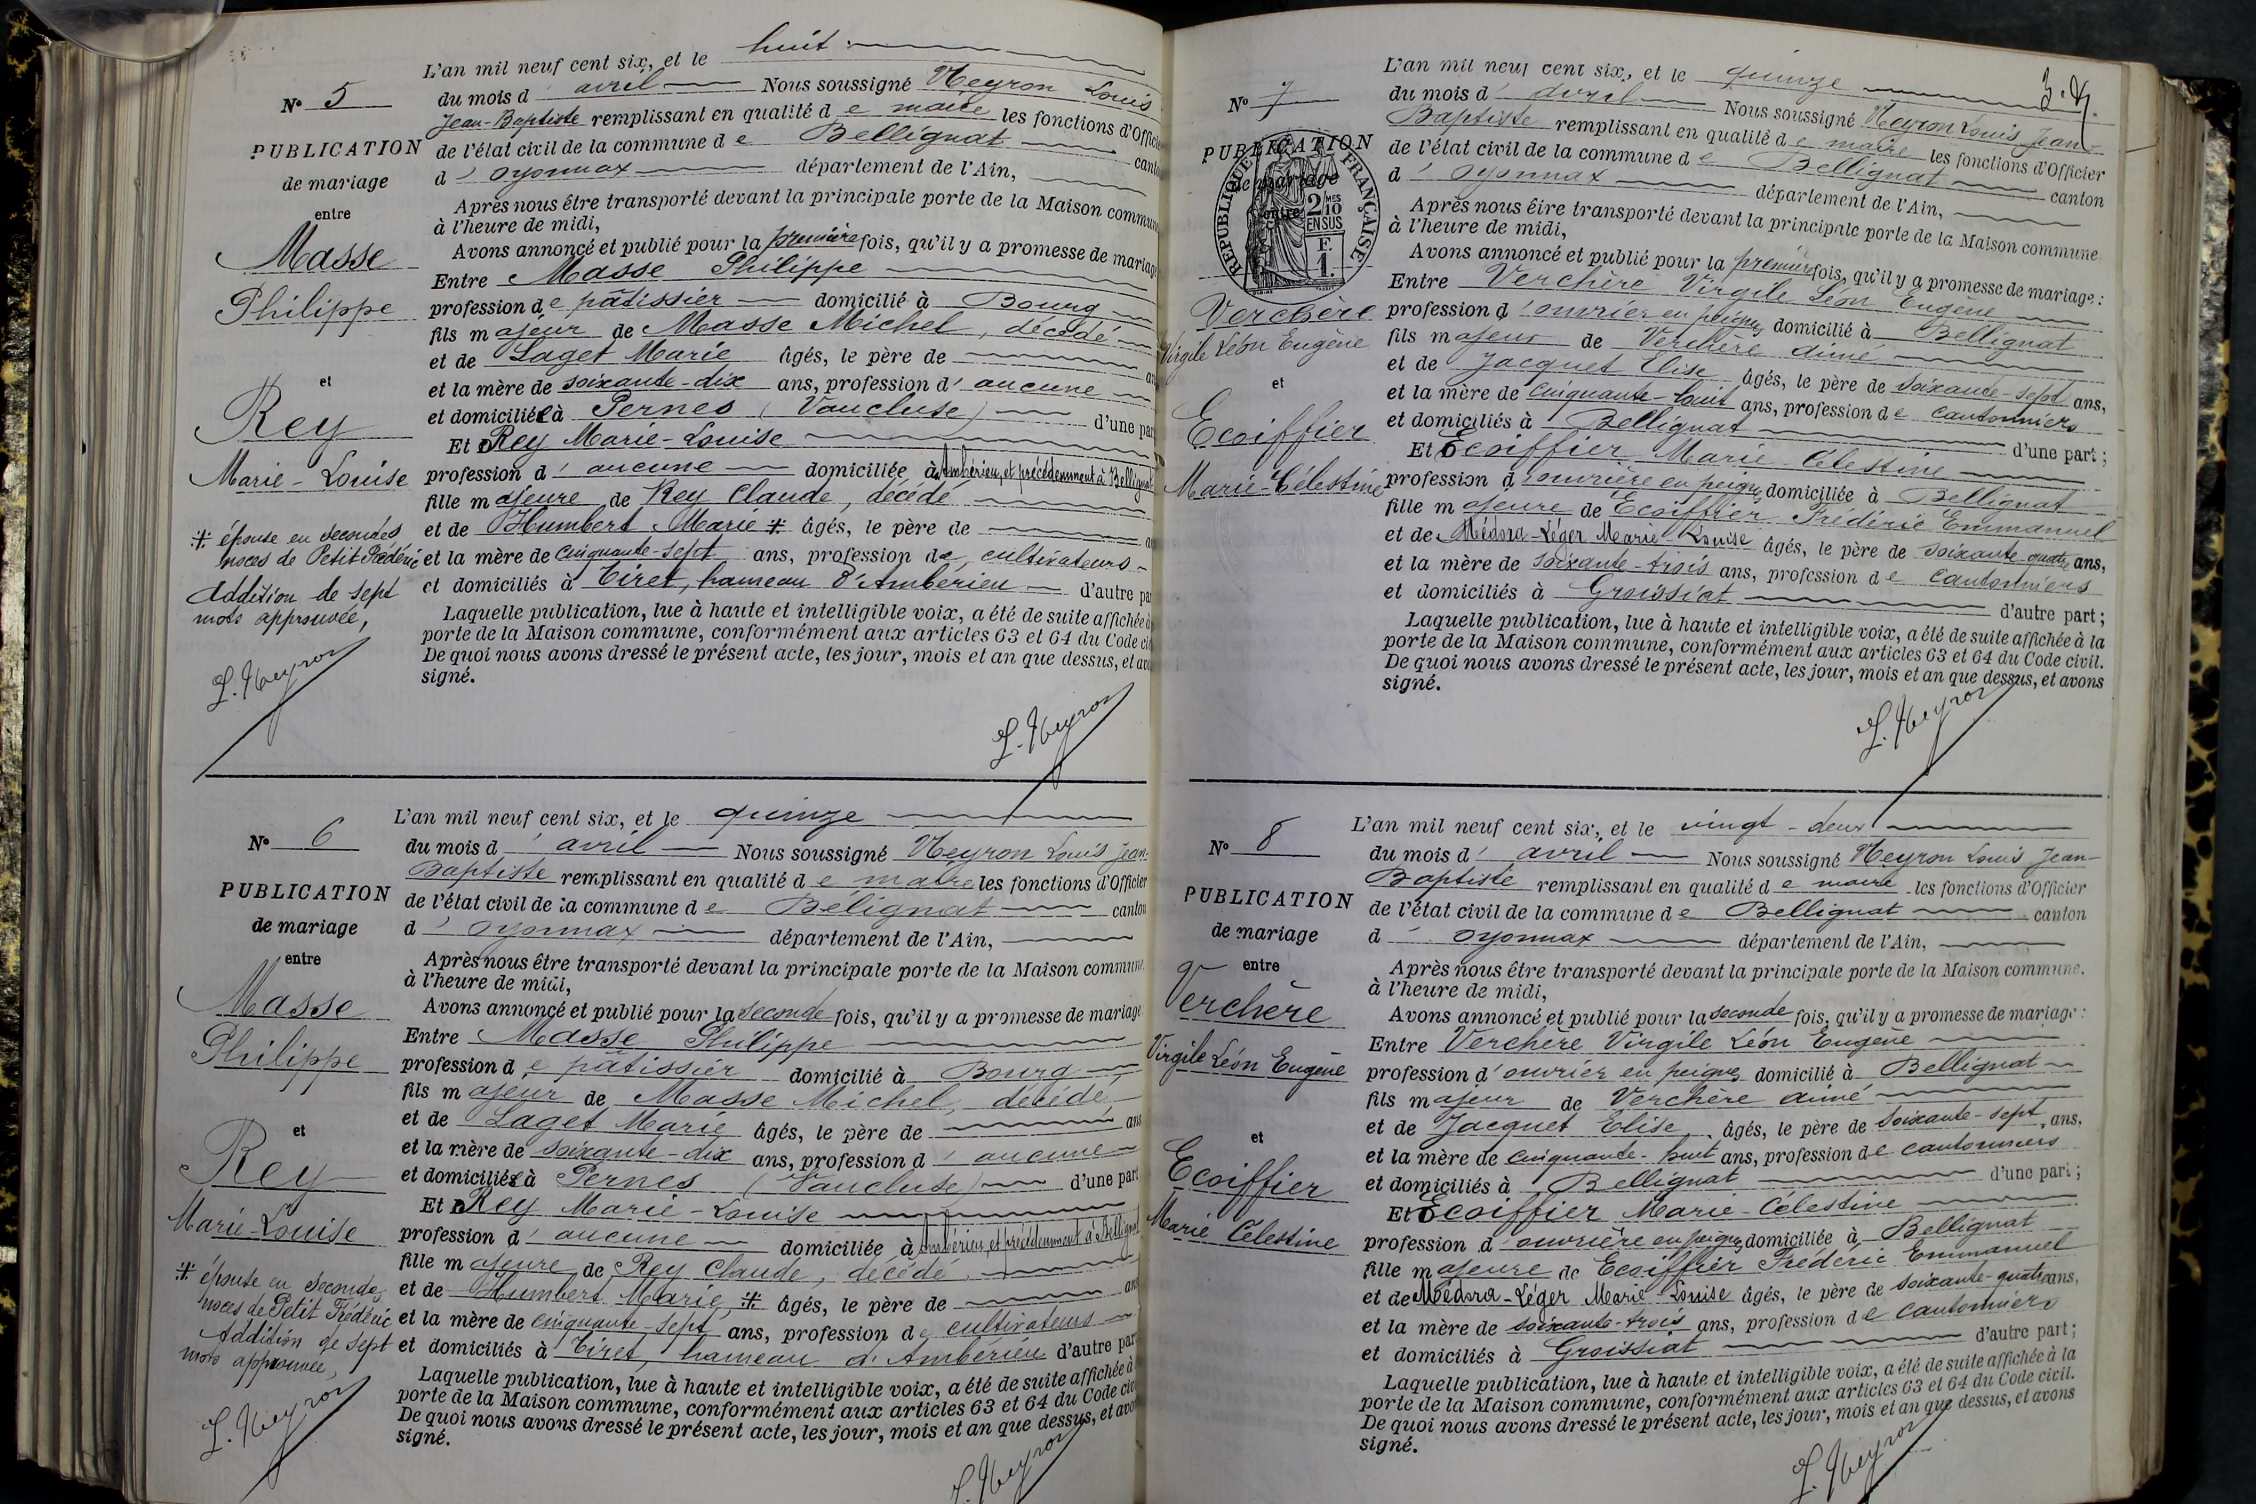 L'an mil neuf cent six, et le huit
N° 5
du mois d' avril Nous soussigné Neyron Louis
Jean-Baptiste remplissant en qualité d e maire les fonctions d'Officier
PUBLICATION
de l'état civil de la commune d e Bellignat canton
de mariage
d' Oyonnax département de l'Ain,
entre
Après nous être transporté devant la principale porte de la Maison commune
à l'heure de midi,
Masse
Avons annoncé et publié pour la première fois, qu'il y a promesse de mariage
Entre Masse Philippe
Philippe
profession d e pâtissier domicilié à Bourg
fils m ajeur de Masse Michel, décédé
et de Laget Marie âgés, le père de
et
et la mère de soixante-dix ans, profession d' aucune
et domiciliée à Pernes (Vaucluse) d'une part
Rey
Et Rey Marie-Louise
Marie-Louise
profession d' aucune domiciliée à Ambérieu, et précédemment à Bellignat
fille m ajeure de Rey Claude, décédé
et de Humbert Marie * âgés, le père de
* épouse en secondes
noces de Petit Frédéric
et la mère de cinquante-sept ans, profession d e cultivateurs
Addition de sept
mots approuvée,
et domiciliés à Tiret, hameau d'Ambérieu d'autre part
Laquelle publication, lue à haute et intelligible voix, a été de suite affichée à
porte de la Maison commune, conformément aux articles 63 et 64 du Code ci
De quoi nous avons dressé le présent acte, les jour, mois et an que dessus, et avo
signé.
L. Neyron
L. Neyron
L'an mil neuf cent six, et le quinze
N° 6
du mois d' avril Nous soussigné Neyron Louis Jean-
Baptiste remplissant en qualité d e maire les fonctions d'Officier
PUBLICATION
de l'état civil de la commune d e Bélignat canton
de mariage
d' Oyonnax département de l'Ain,
entre
Après nous être transporté devant la principale porte de la Maison commune.
à l'heure de midi,
Masse
Avons annoncé et publié pour la seconde fois, qu'il y a promesse de mariage
Entre Masse Philippe
Philippe
profession d e pâtissier domicilié à Bourg
fils m ajeur de Masse Michel, décédé,
et de Laget Marie âgés, le père de ans
et
et la mère de soixante-dix ans, profession d' aucune
et domiciliée à Pernes (Vaucluse) d'une part
Rey
Et Rey Marie-Louise
Marie-Louise
profession d' aucune domiciliée à Ambérieu, et précédemment à Bellignat
fille m ajeure de Rey Claude, décédé
* épouse en secondes
noces de Petit Frédéric
et de Humbert Marie, * âgés, le père de ans
et la mère de cinquante-sept ans, profession d e cultivateurs
Addition de sept
mots approuvée,
et domiciliés à Tiret, hameau d'Ambérieu d'autre part
Laquelle publication, lue à haute et intelligible voix, a été de suite affichée à
porte de la Maison commune, conformément aux articles 63 et 64 du Code civ
De quoi nous avons dressé le présent acte, les jour, mois et an que dessus, et avo
signé.
L. Neyron
L. Neyron
L'an mil neuf cent six, et le quinze
N° 7
du mois d' avril Nous soussigné Neyron Louis Jean-
Baptiste remplissant en qualité d e maire les fonctions d'Officier
PUBLICATION
de l'état civil de la commune d e Bellignat canton
de mariage
d' Oyonnax département de l'Ain,
entre
RÉPUBLIQUE FRANÇAISE
2 MES 10
EN SUS
F.
1.
Après nous être transporté devant la principale porte de la Maison commune
à l'heure de midi,
Avons annoncé et publié pour la première fois, qu'il y a promesse de mariage :
Entre Verchère Virgile Léon Eugène
Verchère
Virgile Léon Eugène
profession d' ouvrier en peignes domicilié à Bellignat
fils m ajeur de Verchère Aimé
et
et de Jacquet Elise âgés, le père de soixante-sept ans,
et la mère de cinquante-huit ans, profession d e cantonniers
Ecoiffier
et domiciliés à Bellignat d'une part ;
Et Ecoiffier Marie Célestine
Marie-Célestine
profession d' ouvrière en peignes domiciliée à Bellignat
fille m ajeure de Ecoiffier Frédéric Emmanuel
et de Médora-Léger Marie Louise âgés, le père de soixante-quatre ans,
et la mère de soixante-trois ans, profession d e cantonniers
et domiciliés à Groissiat d'autre part ;
Laquelle publication, lue à haute et intelligible voix, a été de suite affichée à la
porte de la Maison commune, conformément aux articles 63 et 64 du Code civil.
De quoi nous avons dressé le présent acte, les jour, mois et an que dessus, et avons
signé.
L. Neyron
L'an mil neuf cent six, et le vingt-deux
N° 8
du mois d' avril Nous soussigné Neyron Louis Jean-
Baptiste remplissant en qualité d e maire les fonctions d'Officier
PUBLICATION
de l'état civil de la commune d e Bellignat canton
de mariage
d' Oyonnax département de l'Ain,
entre
Après nous être transporté devant la principale porte de la Maison commune.
à l'heure de midi,
Verchère
Avons annoncé et publié pour la seconde fois, qu'il y a promesse de mariage :
Entre Verchère Virgile Léon Eugène
Virgile Léon Eugène
profession d' ouvrier en peignes domicilié à Bellignat
fils m ajeur de Verchère Aimé
et
et de Jacquet Elise, âgés, le père de soixante-sept ans,
et la mère de cinquante-huit ans, profession d e cantonniers
Ecoiffier
et domiciliés à Bellignat d'une part ;
Et Ecoiffier Marie-Célestine
Marie Célestine
profession d' ouvrière en peignes domiciliée à Bellignat
fille m ajeure de Ecoiffier Frédéric Emmanuel
et de Médora-Léger Marie Louise âgés, le père de soixante-quatre ans,
et la mère de soixante-trois ans, profession d e cantonniers
et domiciliés à Groissiat d'autre part ;
Laquelle publication, lue à haute et intelligible voix, a été de suite affichée à la
porte de la Maison commune, conformément aux articles 63 et 64 du Code civil.
De quoi nous avons dressé le présent acte, les jour, mois et an que dessus, et avons
signé.
L. Neyron